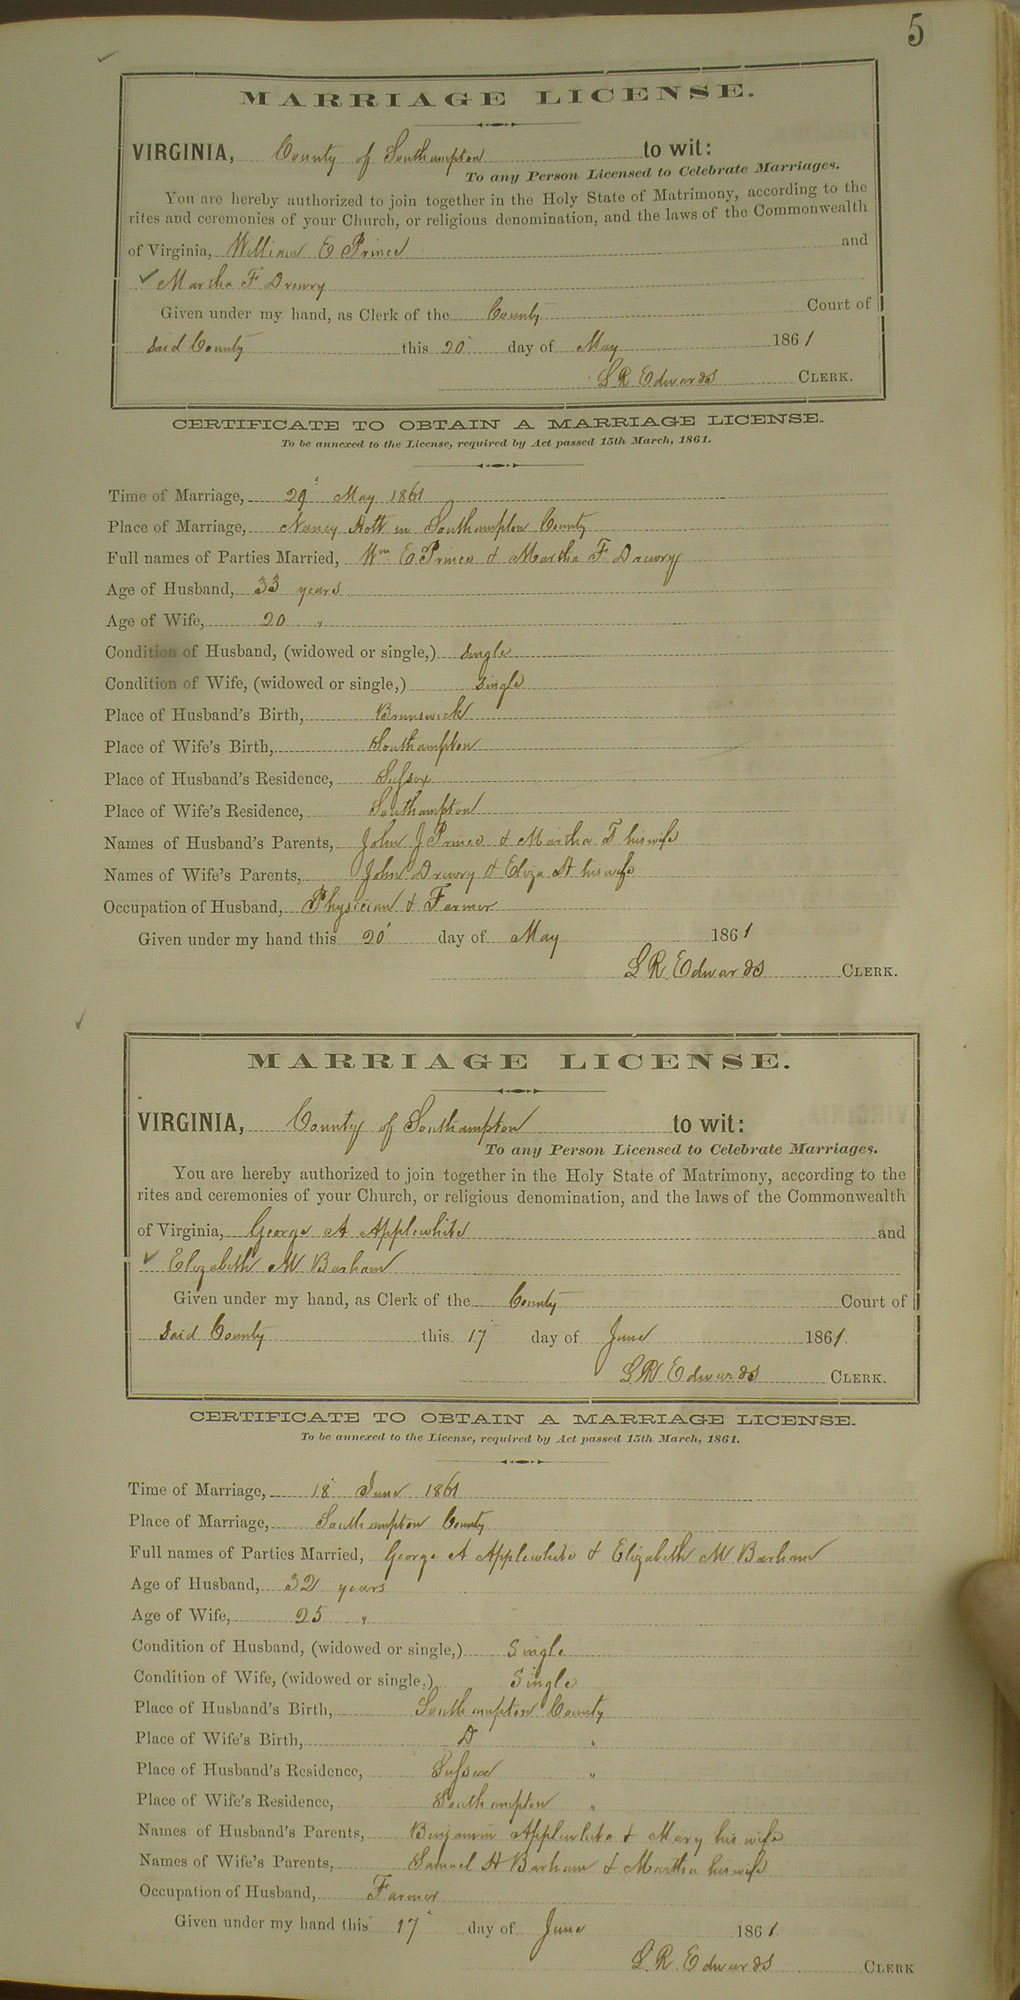 5
MARRIAGE LICENSE.
VIRGINIA, County of Southampton to wit:
To any Person Licensed to Celebrate Marriages.
You are hereby authorized to join together in the Holy State of Matrimony, according to the
rites and ceremonies of your Church, or religious denomination, and the laws of the Commonwealth
of Virginia, William E Prince and
Martha F Drewry
Given under my hand, as Clerk of the County Court of
said County this 20 day of May 1861
L R Edwards CLERK.
CERTIFICATE TO OBTAIN A MARRIAGE LICENSE.
To be annexed to the License, required by Act passed 15th March, 1861.
Time of Marriage, May 1861
Place of Marriage, Nancy in Southampton County
Full names of Parties Married, Wm E Prince & Martha F Drewry
Age of Husband, 33 years
Age of Wife, 20 "
Condition of Husband, (widowed or single,) single
Condition of Wife, (widowed or single,) single
Place of Husband's Birth, Brunswick
Place of Wife's Birth, Southampton
Place of Husband's Residence, Sussex
Place of Wife's Residence, Southampton
Names of Husband's Parents, John J Prince & Martha T his wife
Names of Wife's Parents, John Drewry & Eliza A his wife
Occupation of Husband, Physician & Farmer
Given under my hand this 20 day of May 1861
L R Edwards CLERK.
MARRIAGE LICENSE.
VIRGINIA, County of Southampton to wit:
To any Person Licensed to Celebrate Marriages.
You are hereby authorized to join together in the Holy State of Matrimony, according to the
rites and ceremonies of your Church, or religious denomination, and the laws of the Commonwealth
of Virginia, George A Applewhite and
Elizabeth M Barham
Given under my hand, as Clerk of the County Court of
said County this 17 day of June 1861.
L R Edwards CLERK.
CERTIFICATE TO OBTAIN A MARRIAGE LICENSE.
To be annexed to the License, required by Act passed 15th March, 1861.
Time of Marriage, 18 June 1861
Place of Marriage, Southampton County
Full names of Parties Married, George A Applewhite & Elizabeth M Barham
Age of Husband, 32 years
Age of Wife, 25 "
Condition of Husband, (widowed or single,) Single
Condition of Wife, (widowed or single,) Single
Place of Husband's Birth, Southampton County
Place of Wife's Birth, D "
Place of Husband's Residence, Sussex "
Place of Wife's Residence, Southampton "
Names of Husband's Parents, Benjamin Applewhite & Mary his wife
Names of Wife's Parents, Samuel H Barham & Martha his wife
Occupation of Husband, Farmer
Given under my hand this 17 day of June 1861
L. R. Edwards CLERK